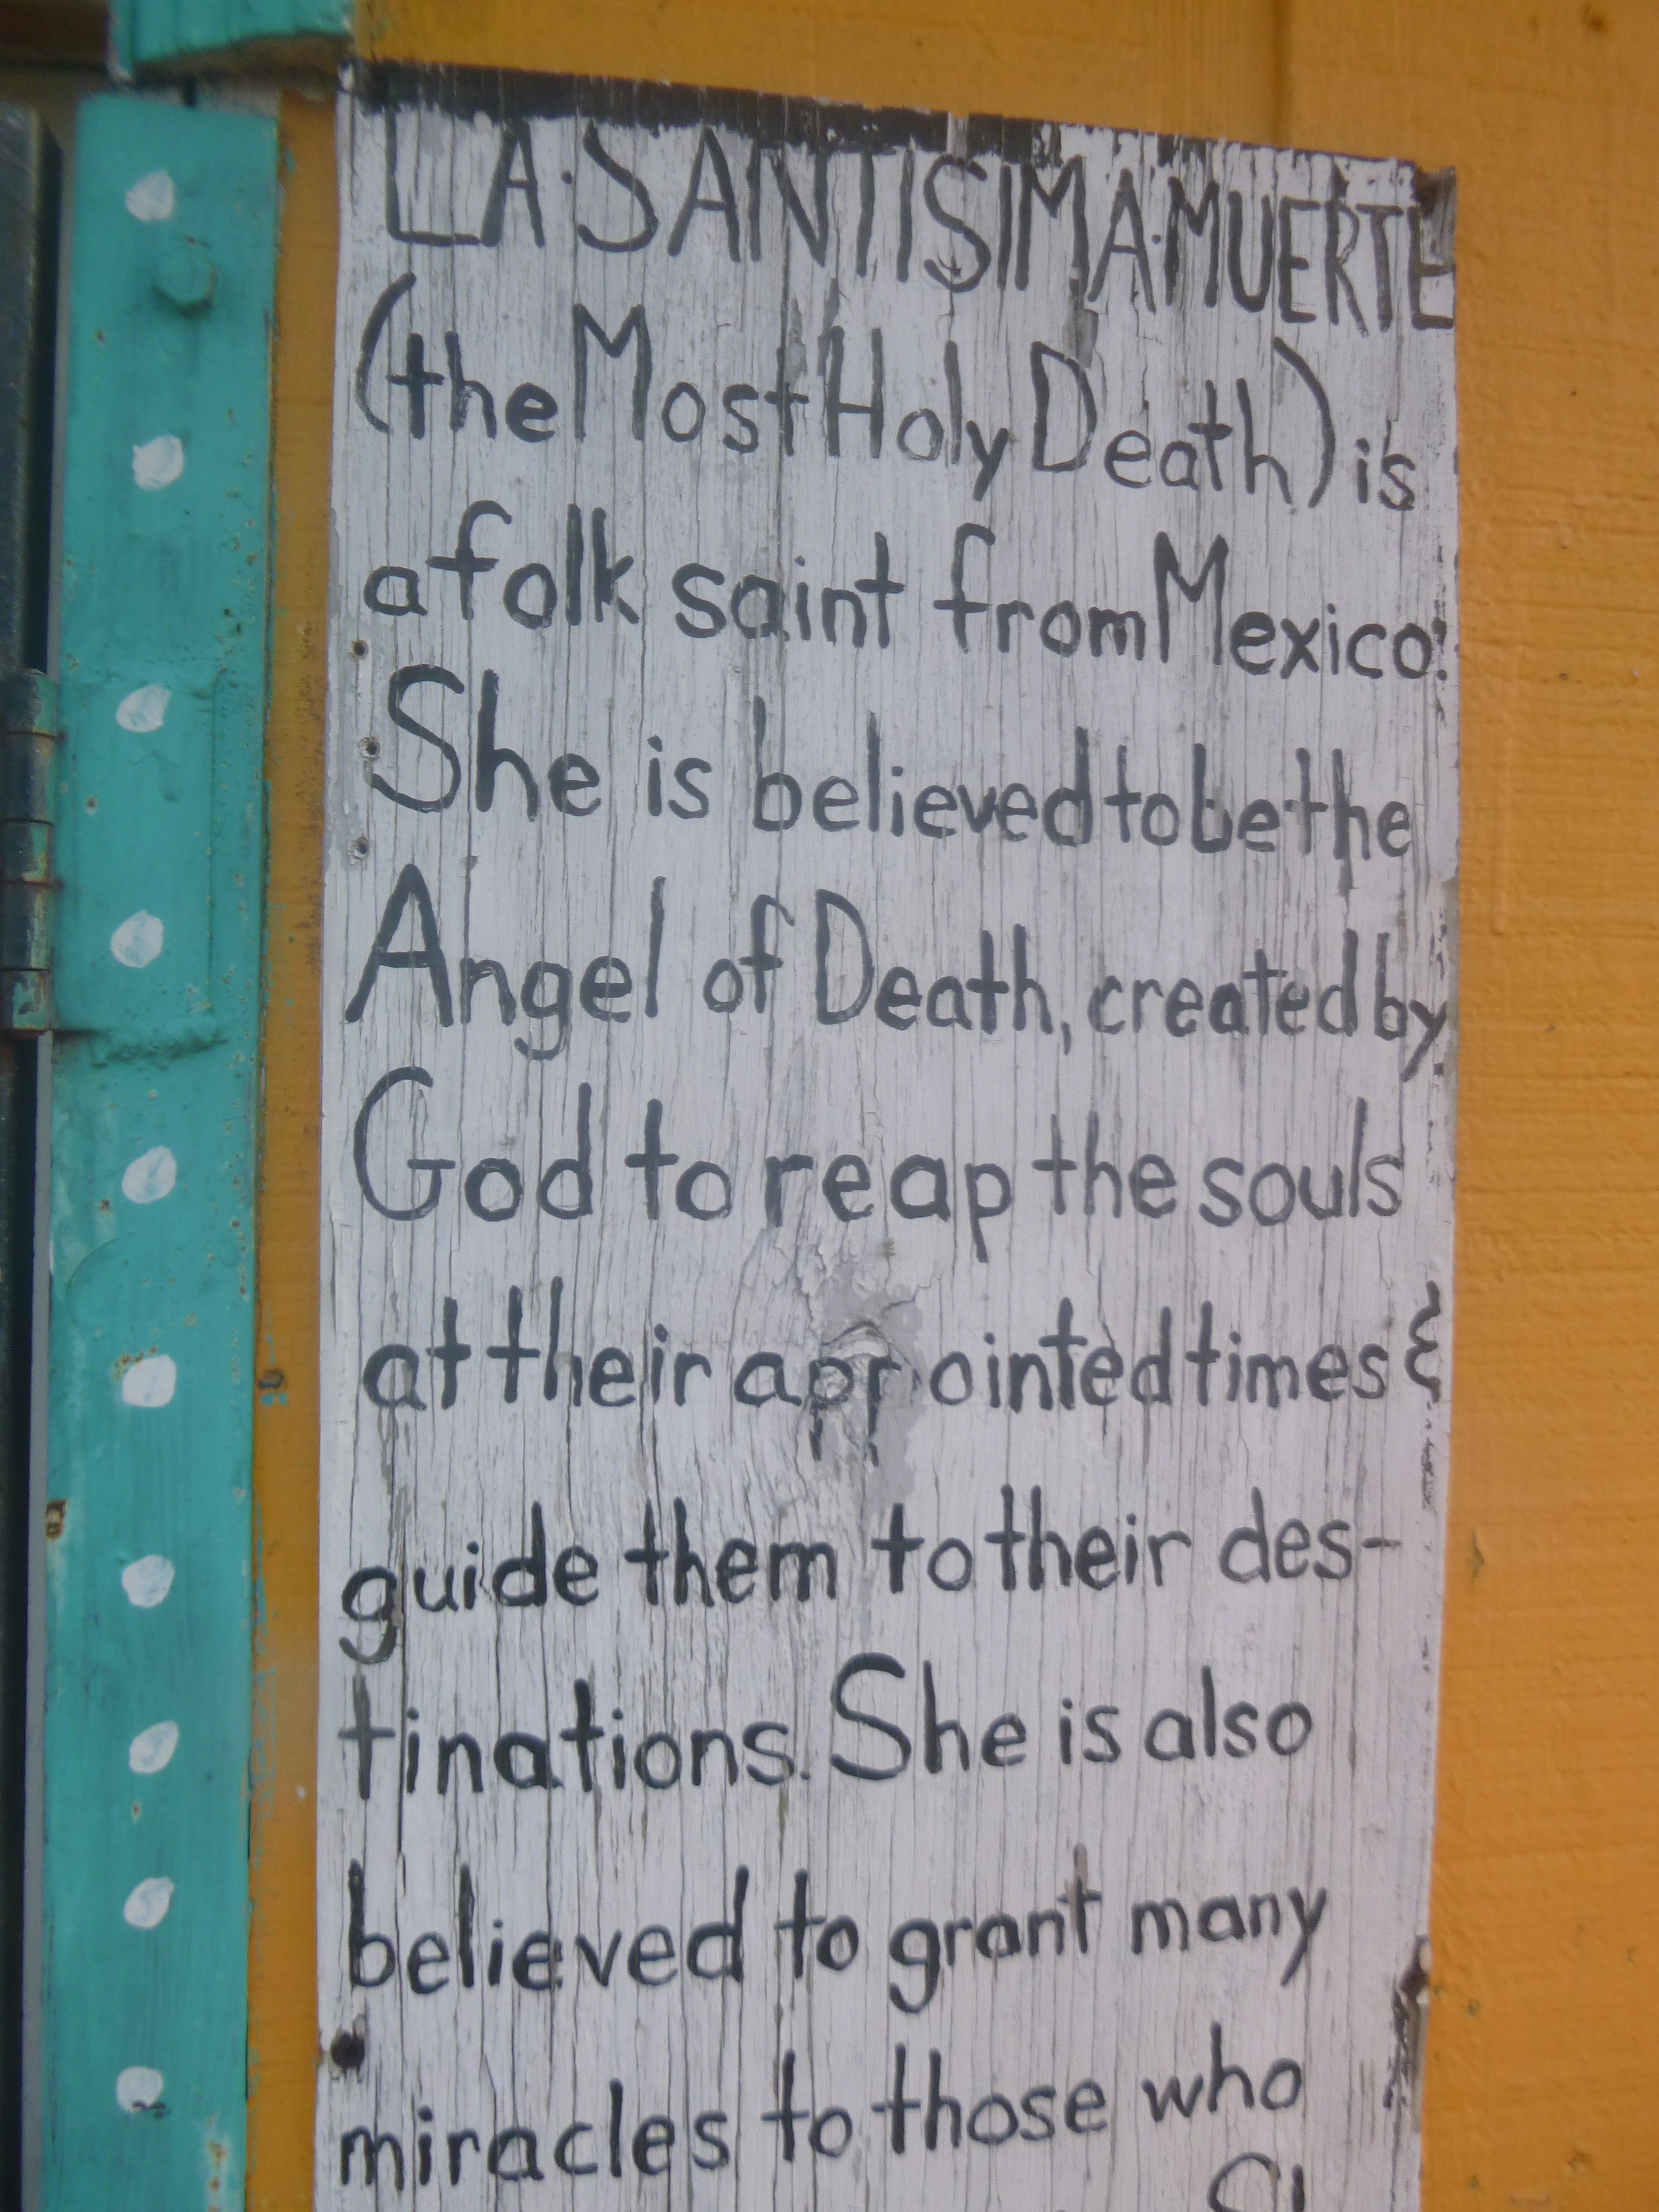 LA·SANTISIMA·MUERTE
(the Most Holy Death) is
a folk saint from Mexico.
She is believed to be the
Angel of Death, created by
God to reap the souls
at their appointed times &
guide them to their des-
tinations. She is also
believed to grant many
miracles to those who